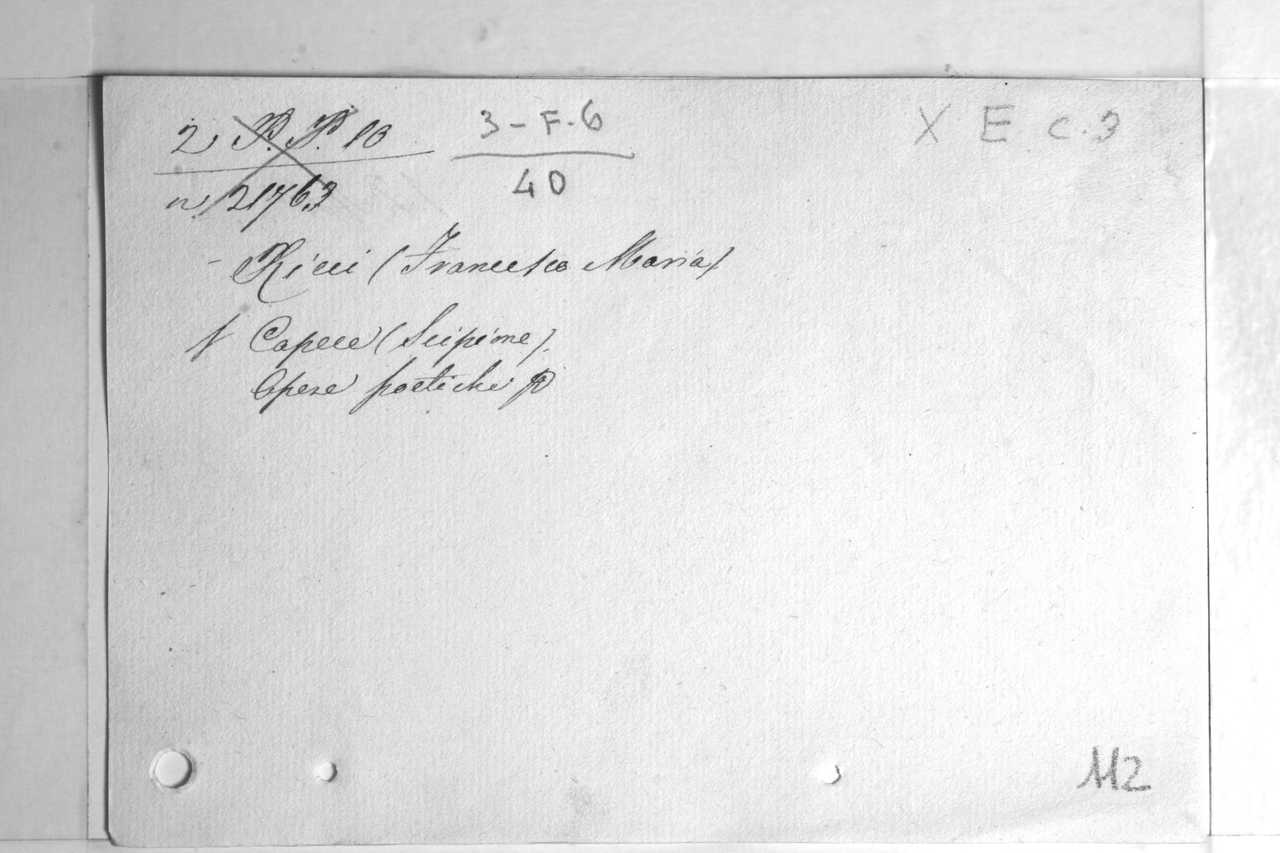 2, P. P. 10
3-F.6
X E c.3
n. 21763
40
- Ricci (Francesco Maria)
f Capece (Scipione).
Opere poetiche
112